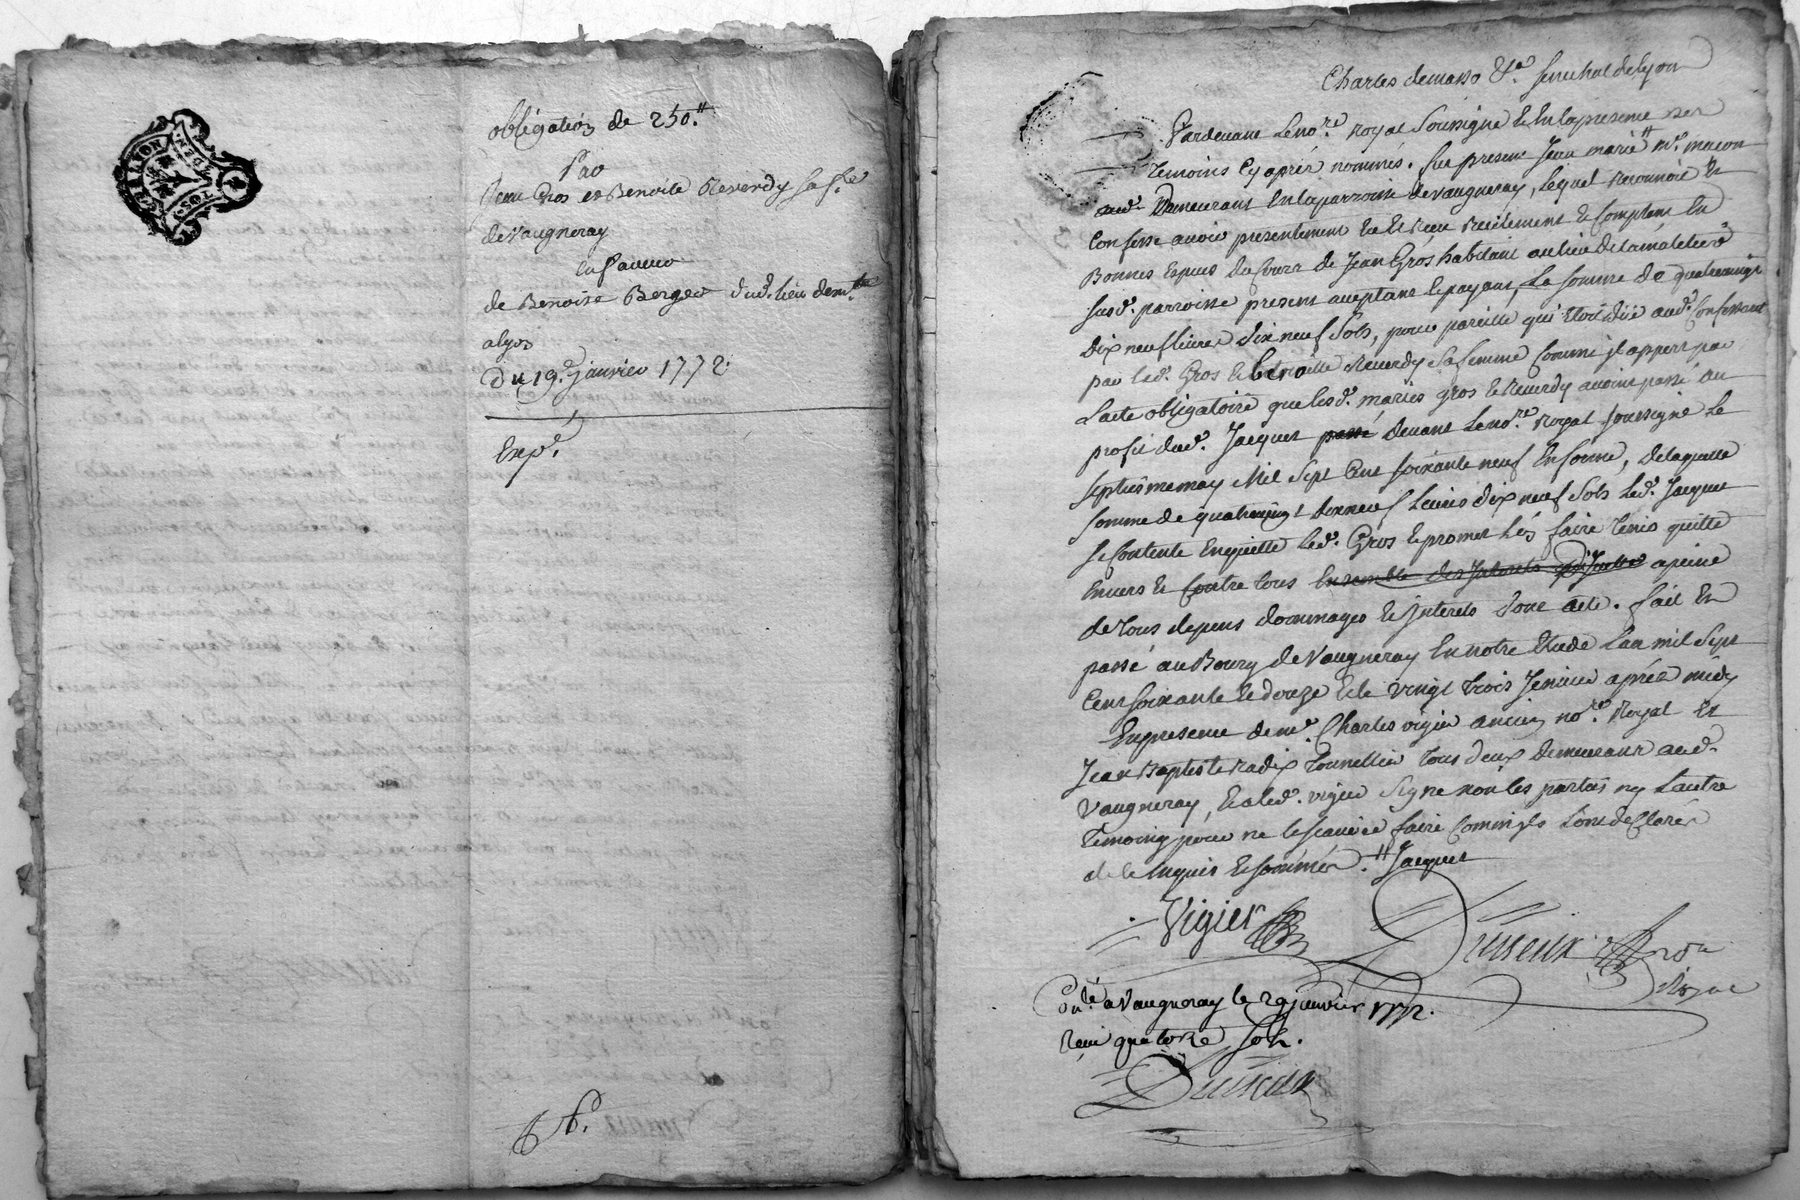 GEN. DE LYON
DEUX SOLS
obligation de 250.ᵗᵗ
Par
Jean Gros et Benoite Reverdy sa fe.
de Vaugneray
en faveur
de Benoist Berger dud. lieu
du 19.e janvier 1772.
Exp.é
Charles demasso &.a senechal de Lyon
Pardevant le no.re royal soussigné et en la presence des
temoins cy après nommés. fut present Jean marie m.e macon
aud. Demeurant en la parroisse de Vaugneray, lequel reconnoit et
confesse avoir presentement eu et recu reellement et comptant en
Bonnes especes du cours de Jean Gros habitant au lieu de
susd. parroisse present acceptant et payant, la somme de quatrevingt
dix neuf livres dix neuf sols, pour pareille qui etoit düe aud. confessant
par led. Gros et benoitte Reverdy sa femme comme il appert par
l'acte obligatoire que lesd. mariés gros et Reverdy avoient passé au
profit dud. Jacquet passé devant le no.re royal soussigné le
septième may mil sept cent soixante neuf en forme, de laquelle
somme de quatrevingt dix neuf livres dix neuf sols led. Jacquet
se contente en quitte led. Gros et promet les faire tenir quitte
envers et contre tous ensemble des interets apeine
de tous depens dommages et interets dont acte. fait et
passé au Bourg de Vaugneray en notre etude l'an mil sept
cent soixante et douze et le vingt trois Janvier après midy
En presence de m.e Charles vigier ancien no.re royal et
Jean Baptiste radix tonnellier tous deux demeurant aud.
Vaugneray, et a led. vigier signé non les parties ny l'autre
temoing pour ne le scavoir faire comm'ils l'ont declaré
de ce enquis et sommés. ᵗᵗ Jacquet
Vigier
Con.lé a Vaugneray le 29 janvier 1772.
Recu quatorze sols.